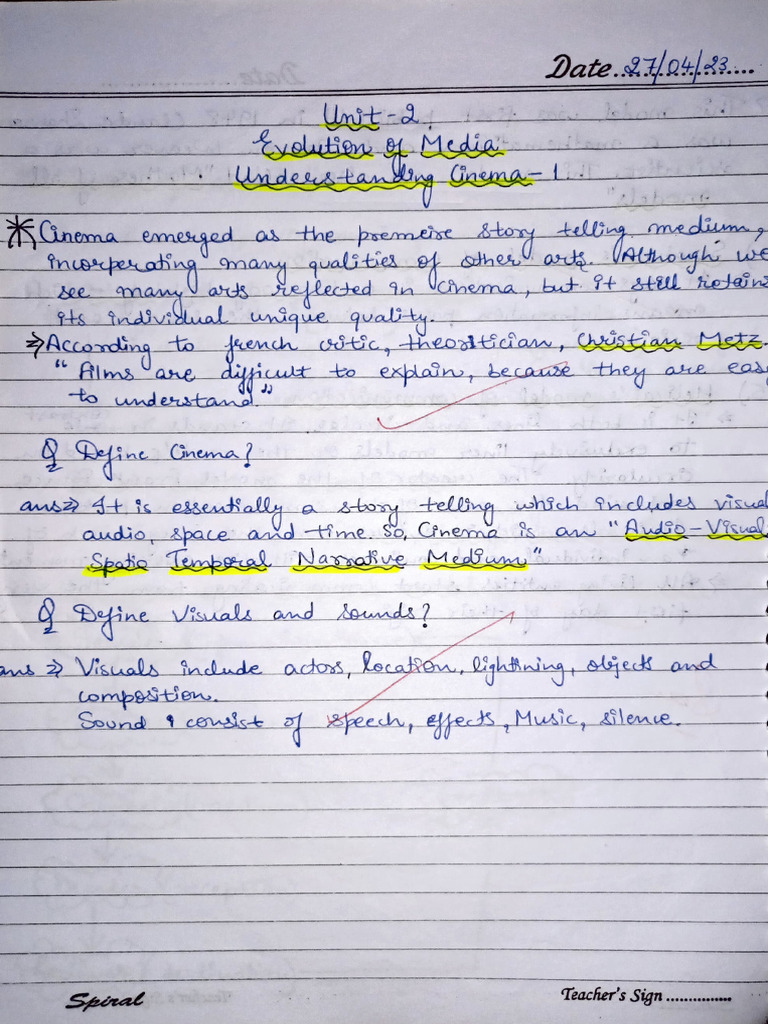 Date..27/04/23....
Unit-2.
Evolution of Media
Understanding Cinema-1
Cinema emerged as the premeire story telling medium,
incorperating many qualities of other arts. Although we
see many arts reflected in cinema, but it still retains
its individual unique quality.
⇒ According to french critic, theoritician, Christian Metz.
"Films are difficult to explain, because they are easy
to understand."
Q Define Cinema?
ans⇒ It is essentially a story telling which includes visual
audio, space and time. So, Cinema is an "Audio-Visual
Spatio Temporal Narrative Medium"
Q Define Visuals and sounds?
ans ⇒ Visuals include actors, location, lightning, objects and
composition.
Sound consist of speech, effects, Music, silence.
Spiral
Teacher's Sign ...............